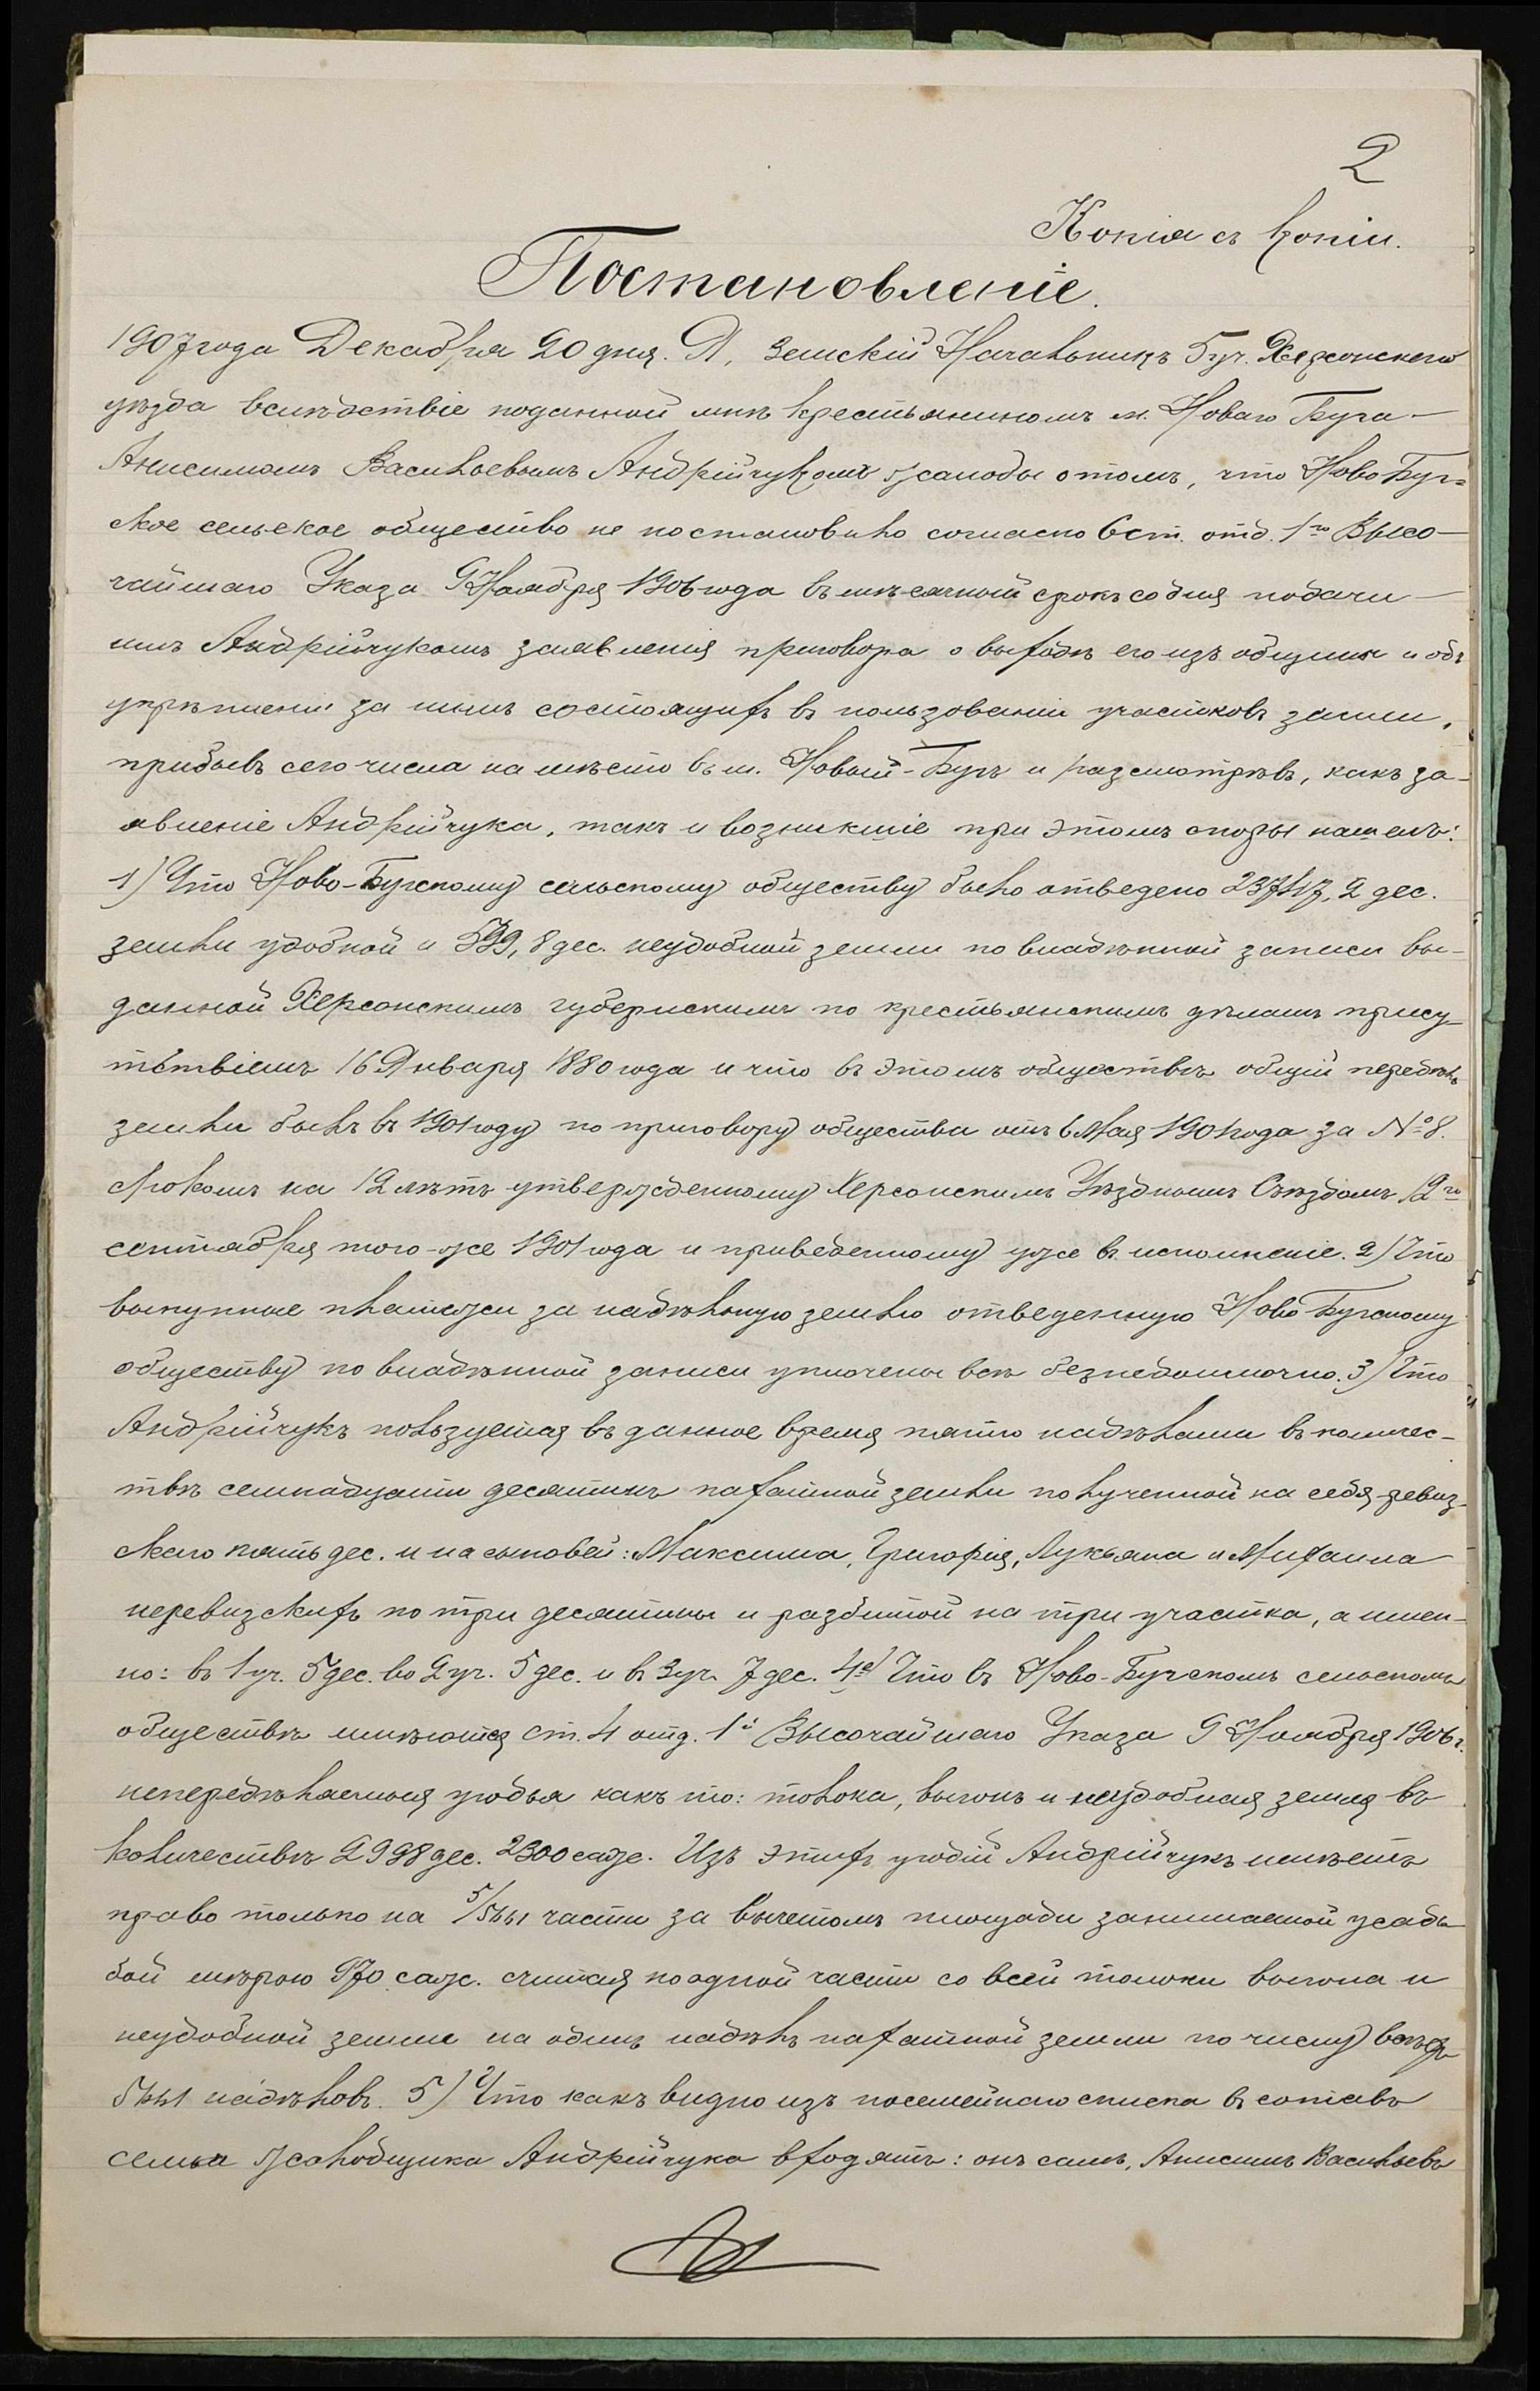 2
Копія съ копіи.
Постановленіе.
1907 года Декабря 20 дня. Я, Земскій Начальникъ 5 уч. Херсонскаго
уѣзда вслѣдствіе поданной мнѣ крестьяниномъ м. Новаго Буга
Анисимомъ Васильевымъ Андрійчукомъ жалобы о томъ, что Ново Буг=
ское сельское общество не постановило согласно 6 ст. отд. 1го Высо-
чайшаго Указа 9 Ноября 1906 года въ мѣсячной срокъ со дня подачи
имъ Андрійчукомъ заявленія приговора о выходѣ его изъ общины и объ
укрѣпленіи за нимъ состоящихъ въ пользованіи участковъ земли,
прибывъ сего числа на мѣсто въ м. Новый-Бугъ и разсмотрѣвъ, какъ за-
явленіе Андрійчука, такъ и возникшіе при этомъ споры нашелъ:
1) Что Ново-Бугскому сельскому обществу было отведено 23717,2 дес.
земли удобной и 599,8 дес. неудобной земли по владѣнной записи вы-
данной Херсонскимъ губернскимъ по крестьянскимъ дѣламъ прису-
тствіемъ 16 Января 1880 года и что въ этомъ обществѣ общій передѣлъ
земли былъ въ 1901 году по приговору общества отъ 6 Мая 1901 года за № 8.
срокомъ на 12 лѣтъ утвержденному Херсонскимъ Уѣзднымъ Съѣздомъ 12го
сентября того-же 1901 года и приведенному уже въ исполненіе. 2) Что
выкупные платежи за надѣльную землю отведенную Ново Бугскому
обществу по владѣнной записи уплочены всѣ безнедоимочно. 3) Что
Андрійчукъ пользуется въ данное время пятью надѣлами въ количес-
твѣ семнадцати десятинъ пахатной земли полученной на себя ревиз-
скаго пять дес. и на сыновей: Максима, Григорія, Лукьяна и Михаила
неревизскихъ по три десятины и разбитой на три участка, а имен-
но: въ 1 уч. 5 дес. во 2 уч. 5 дес. и въ 3 уч. 7 дес. 4е) Что въ Ново-Бугскомъ сельскомъ
обществѣ имѣются ст. 4 отд. 1й Высочайшаго Указа 9 Ноября 1906 г.
непередѣляемыя угодья какъ то: толока, выгонъ и неудобная земля въ
количествѣ 2998 дес. 2300 саж. Изъ этихъ угодій Андрійчукъ имѣетъ
право только на 5/5441 части за вычетомъ площади занимаемой усадь
бой мѣрою 970 саж. считая по одной части со всей толоки выгона и
неудобной земли на одинъ надѣлъ пахатной земли по числу всѣхъ
5441 надѣловъ. 5) Что какъ видно изъ посемейнаго списка въ составъ
семьи жалобщика Андрійчука входятъ: онъ самъ, Анисимъ Васильевъ